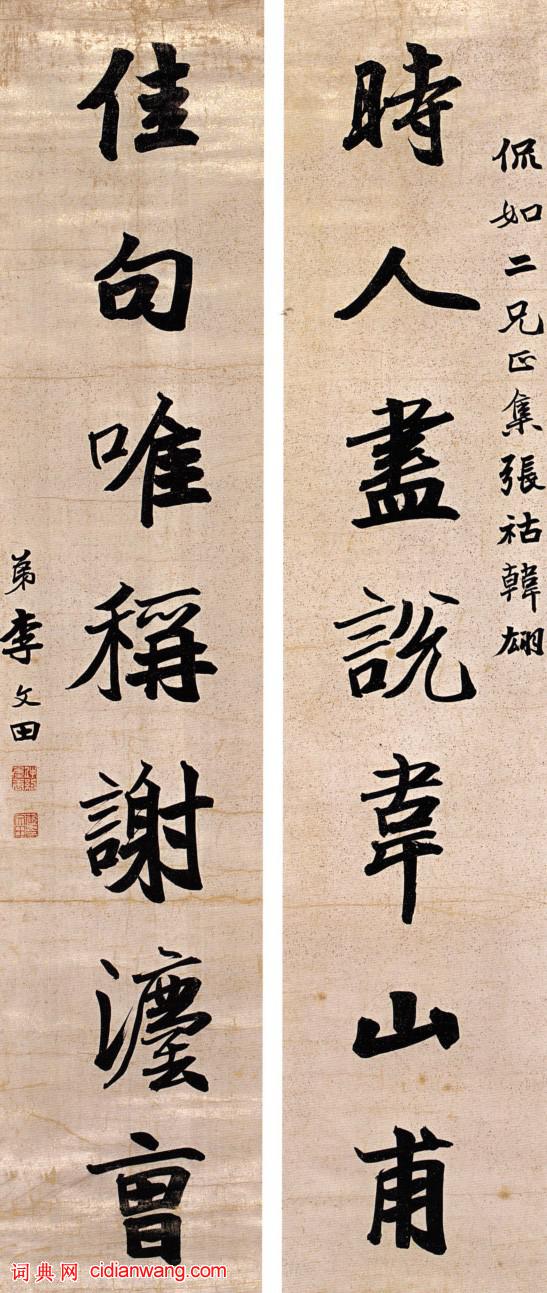 侃如二兄正集張祜韓翃
時人盡說韋山甫
佳句唯稱謝灋曹
弟李文田
词典网 cidianwang.com